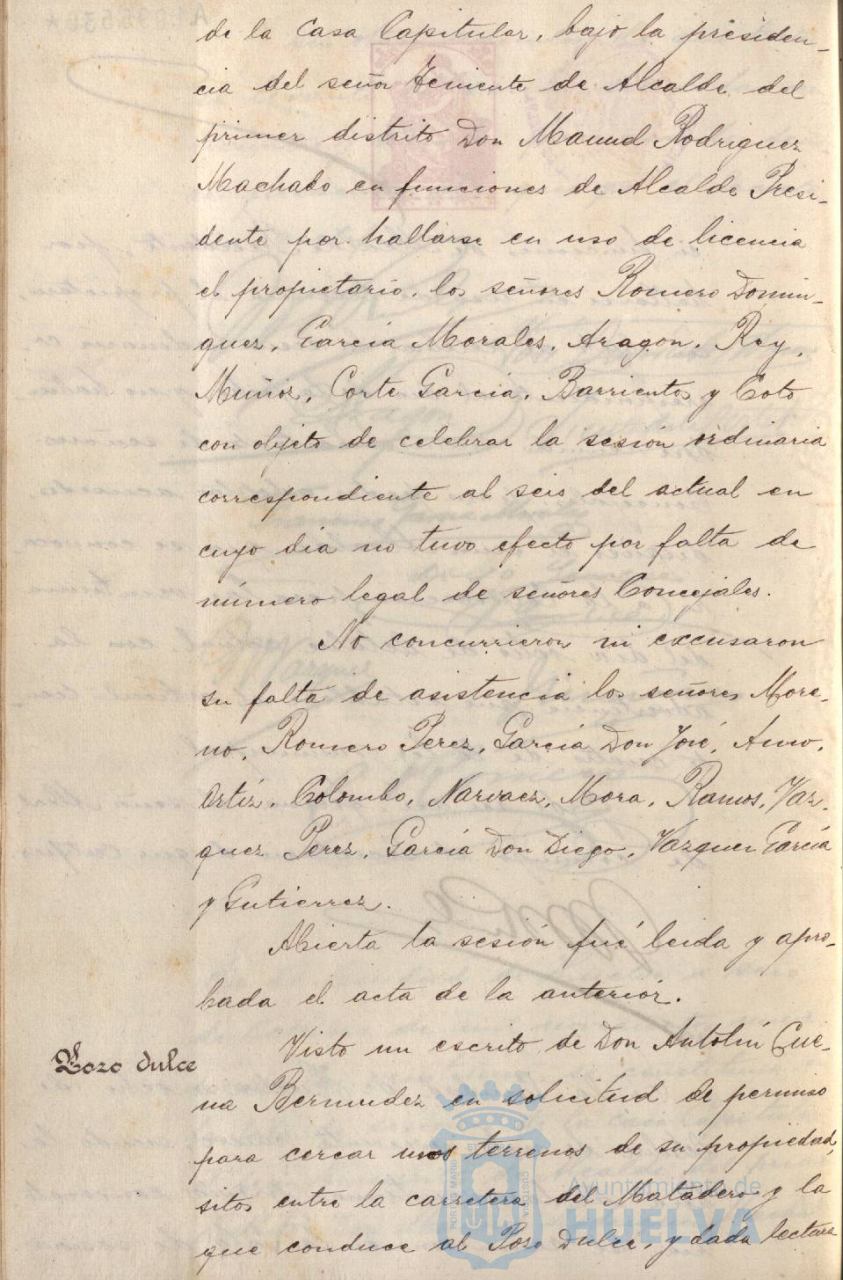 de la Casa Capitular, bajo la presiden-
cia del señor Teniente de Alcalde del
primer distrito Don Manuel Rodriguez
Machado en funciones de Alcalde Presi-
dente por hallarse en uso de licencia
el propietario, los señores Romero Domin-
guez, García Morales, Aragon, Rey,
Muñoz, Corte García, Barrientos y Coto
con objeto de celebrar la sesión ordinaria
correspondiente al seis del actual en
cuyo dia no tuvo efecto por falta de
número legal de señores Concejales.
No concurrieron ni excusaron
su falta de asistencia los señores More-
no, Romero Perez, García Don José,
Ortíz, Colombo, Narvaez, Mora, Ramos, Vaz-
quez Perez, García Don Diego, Vazquez García
y Gutierrez.
Abierta la sesión fué leida y apro-
bada el acta de la anterior.
Pozo dulce
Visto un escrito de Don Antolín Cue-
na Bermudez en solicitud de permiso
para cercar unos terrenos de su propiedad,
sitos entre la carretera del Matadero y la
que conduce al Pozo Dulce, y dada lectura
Ayuntamiento de
HUELVA